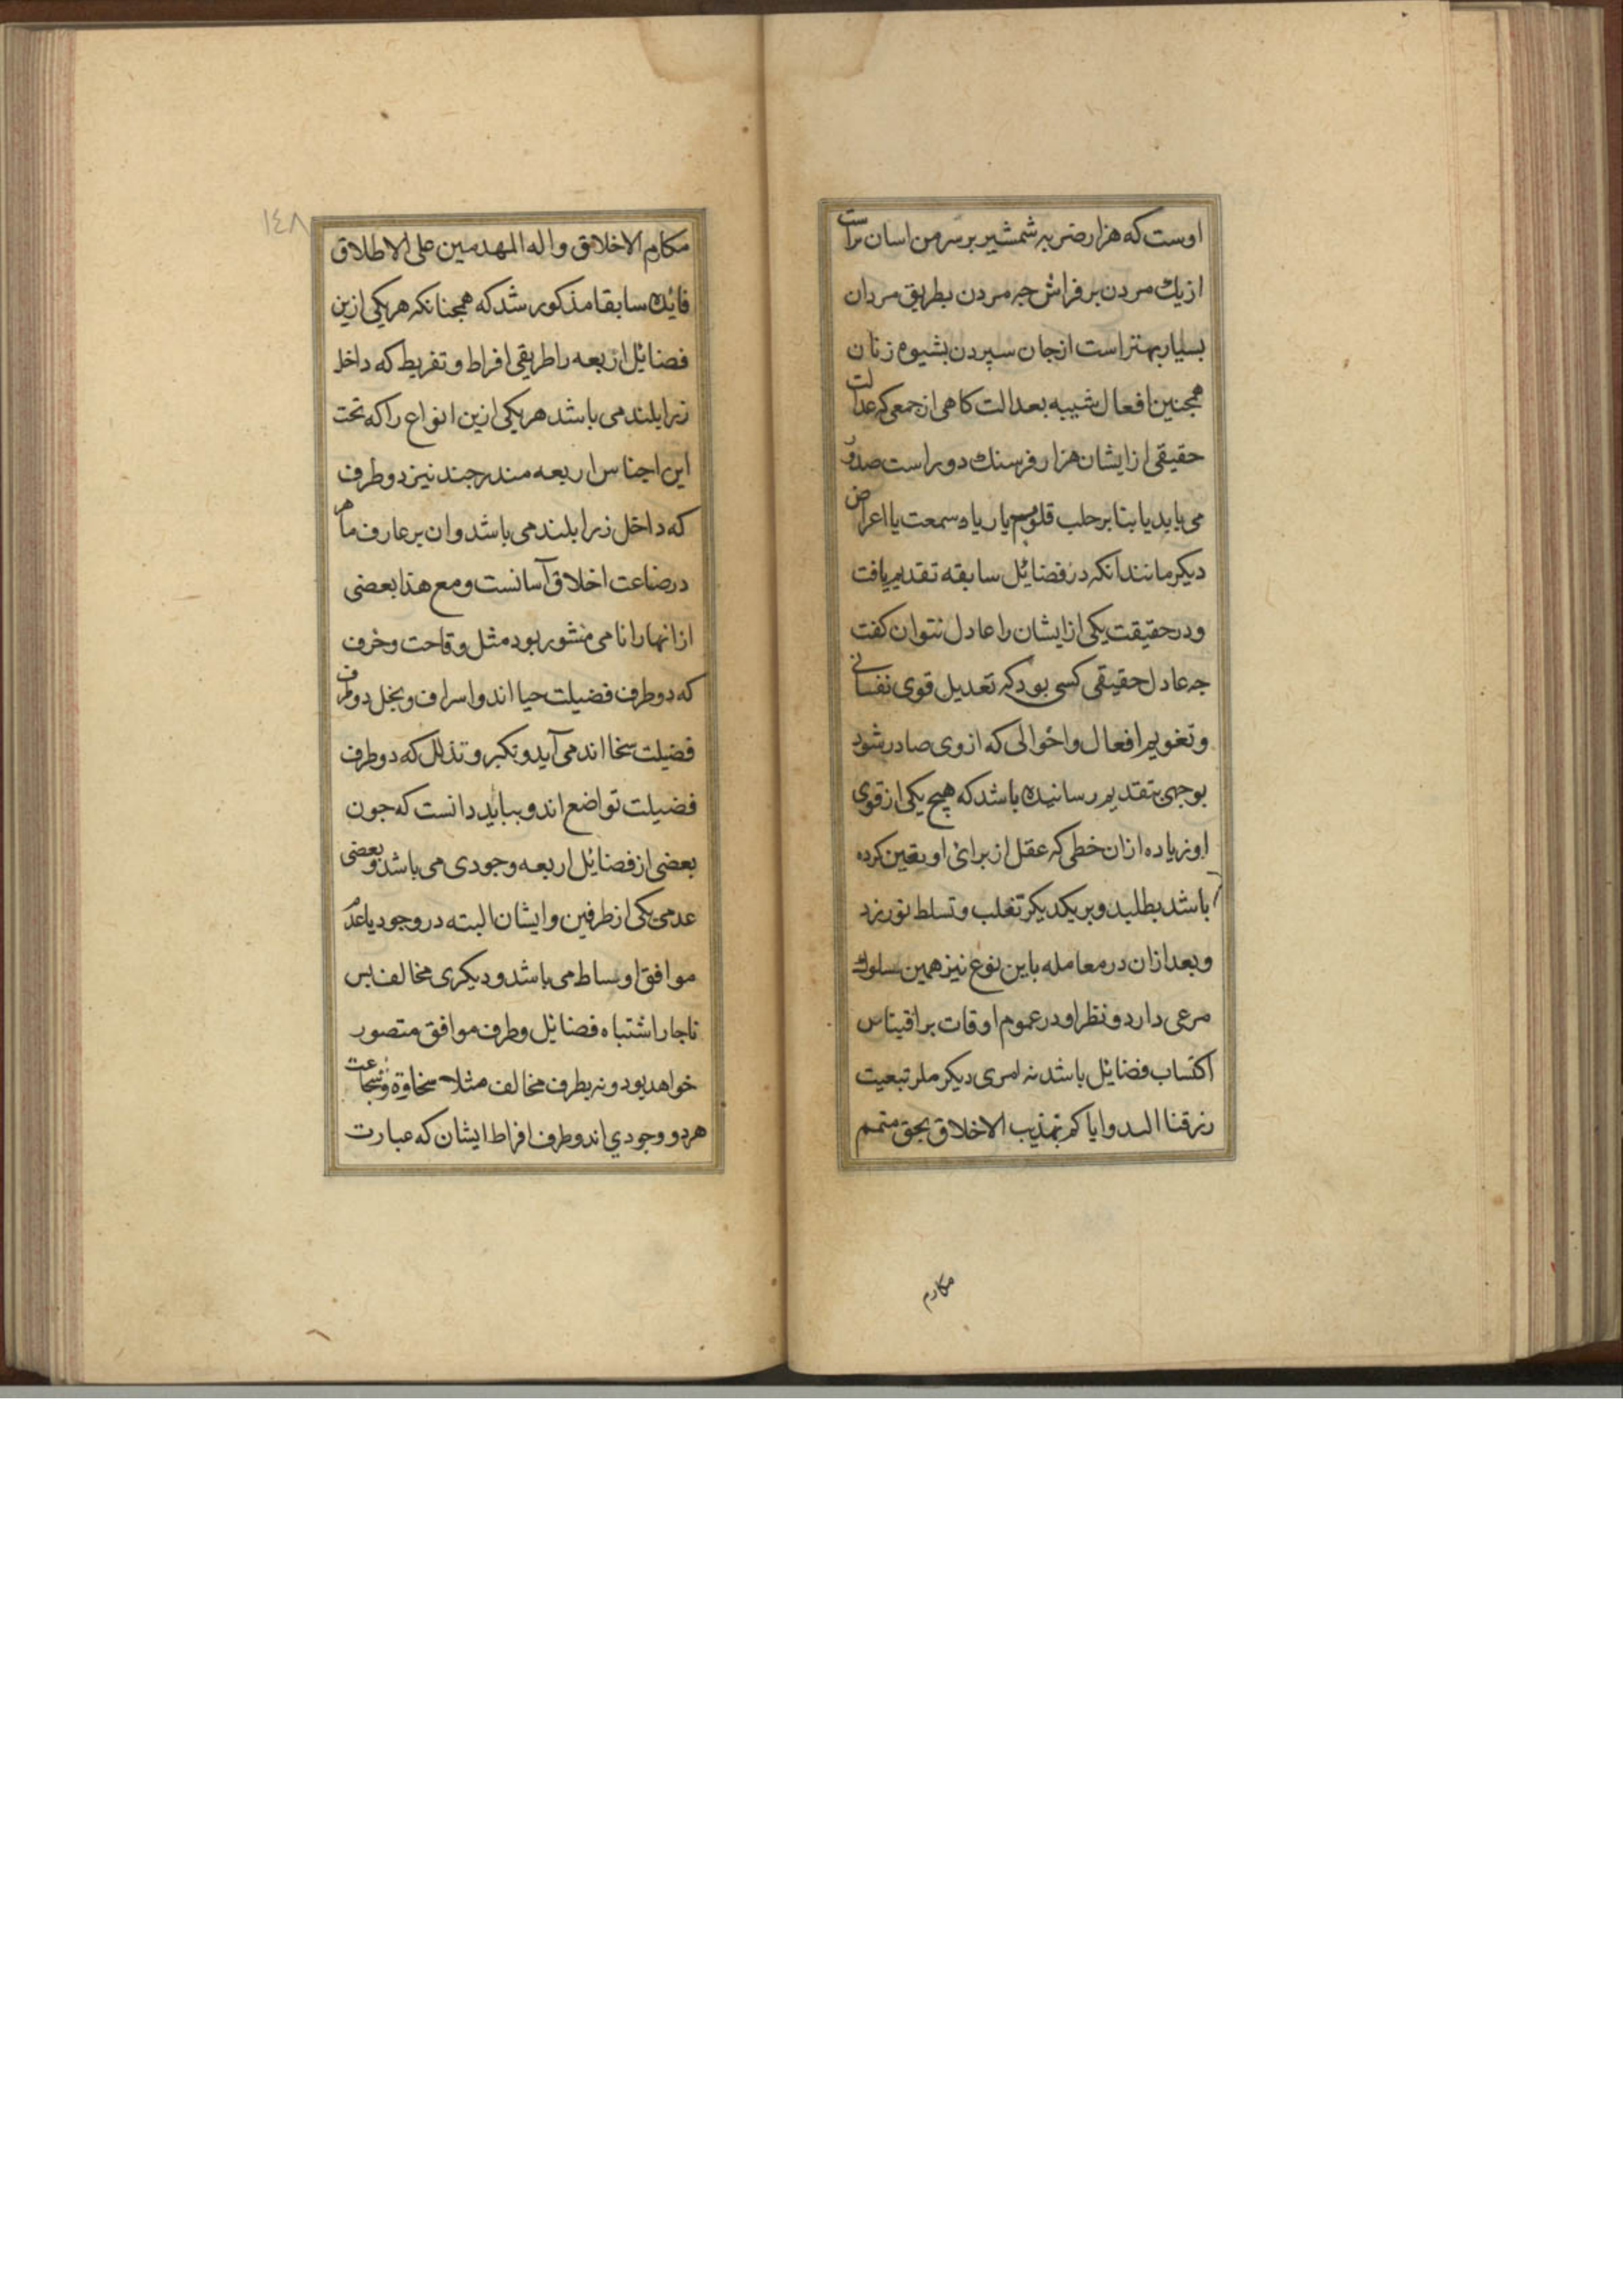 اوست که هزار ضربه شمشیر بر سر من اسان تراست
از یك مردن بر فراش جه مردن بطریق مردان
بسیار بهتر است از جان سپردن بشیوه زنان
همجنین افعال شبیه بعدالت کاهی از جمعی که عدالت
حقیقی از ایشان هزار فرسنك دور است صدور
می یابد یا بنا بر جلب قلوب یا ریا و سمعت یا اعراض
دیکر مانند انکه در فضائل سابقه تقدیم یافت
و در حقیقت یکی از ایشان را عادل نتوان کفت
جه عادل حقیقی کسی بود که تعدیل قوی نفسانی
و تغویم افعال و اخوالی که از وی صادر شود
بوجهی بتقدیم رسانیده باشد که هیچ یکی از قوی
او زیاده ازان خطی که عقل از برائ او یقین کرده
باشد بطلبد و بر یکدیکر تغلب و تسلط نورزد
و بعد ازان در معامله باین نوع نیز همین سلوك
مرعی دارد و نظر او در عموم اوقات بر اقیناس
اکتساب فضائل باشد نه امری دیکر ملر تبعیت
رزقنا الله وایاکم تهذیب الاخلاق بحق متمم
مکارم
١٤٨
مکارم الاخلاق واله المهدمین علی الاطلاق
فائده سابقا مذکور شد که همجنانکه هر یکی ازین
فضائل اربعه را طریقی افراط و تفریط که داخل
زرابلند می باشد هر یکی ازین انواع را که تحت
این اجناس اربعه مندرجند نیز دو طرف
که داخل زرابلند می باشد وان بر عارف ماهر
درضاعت اخلاق آسانست و مع هذا بعضی
از انها را نامی منشور بود مثل وقاحت و خرف
که دو طرف فضیلت حیا اند و اسراف و بخل دو طرف
فضیلت سخا اند می آید و تکبر و تذلل که دو طرف
فضیلت تواضع اند و بباید دانست که جون
بعضی از فضائل اربعه وجودی می باشد و بعضی
عدمی یکی از طرفین وایشان البته در وجود یا عدم
موافق اوساط می باشد و دیکری مخالف بس
ناجار اشتباه فضائل و طرف موافق متصور
خواهد بود و نه بطرف مخالف مثلا سخاوة وشجاعت
هر دو وجودي اند و طرف افراط ایشان که عبارت